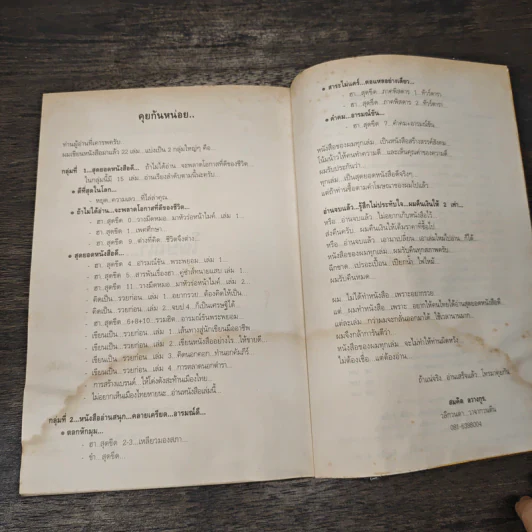 คุยกันหน่อย..
ท่านผู้อ่านที่เคารพครับ
ผมเขียนหนังสือมาแล้ว 32 เล่ม.. แบ่งเป็น 2 กลุ่มใหญ่ๆ คือ..
กลุ่มที่ 1...สุดยอดหนังสือดี... ถ้าไม่ได้อ่าน.. จะพลาดโอกาสที่ดีของชีวิต...
ในกลุ่มนี้มี 15 เล่ม..อ่านเรื่องลำดับตามนี้นะครับ...
● ดีที่สุดในโลก...
- หยุด..ความเลว..ที่ไล่ล่าคุณ
● ถ้าไม่ได้อ่าน...จะพลาดโอกาสที่ดีของชีวิต...
- ฮา..สุดขีด 0...วางมีดหมอ...มาหัวร่อหน้าไมค์..เล่ม 1...
- ฮา..สุดขีด 1...เทคที่กษา...
- ฮา..สุดขีด 9...ต่างที่คิด...ชีวิตจึงต่าง...
● สุดยอดหนังสือดี...
- ฮา..สุดขีด 4...อารมณ์ขัน..พระพยอม..เล่ม 1...
- ฮา..สุดขีด 5...สารพันเรื่องฮา..คู่ซ่าส์ทนายแสบ..เล่ม 1...
- ฮา..สุดขีด 11...วางมีดหมอ...มาหัวร่อหน้าไมค์..เล่ม 2...
- คิดเป็น...รวยก่อน..เล่ม 1..อยากรวย...ต้องคิดให้เป็น...
- คิดเป็น...รวยก่อน..เล่ม 2..จบป.4..ก็เป็นเศรษฐีได้...
- ฮา..สุดขีด..6+8+10..รวมฮิต...อารมณ์ขันพระพยอม...
- เขียนเป็น...รวยก่อน..เล่ม 1..เส้นทางสู่นักเขียนมืออาชีพ
- เขียนเป็น...รวยก่อน..เล่ม 2..เขียนหนังสืออย่างไร...ให้ขายดี...
- เขียนเป็น...รวยก่อน..เล่ม 3..คิดนอกคอก...ทำนอกคัมภีร์
- เขียนเป็น...รวยก่อน..เล่ม 4..การตลาดนอกตำรา...
- การสร้างแบรนด์..ให้โด่งดังสะท้านเมืองไทย...
- ไม่อยากเห็นเมืองไทยหายนะ..อ่านหนังสือเล่มนี้...
กลุ่มที่ 2...หนังสืออ่านสนุก...คลายเครียด...อารมณ์ดี...
● ตลกหักมุม...
- ฮา..สุดขีด 2-3...เหลียวมองสภา...
- ขำ..สุดขีด...
● สาระไม่แคร์...ตลแหลอย่างเดียว...
- ฮา..สุดขีด...ภาคพิสดาร 1..ทัวร์ดารา
- ฮา..สุดขีด...ภาคพิสดาร 2..ทัวร์ดารา
● คำคม...อารมณ์ขัน...
- ฮา..สุดขีด 7...คำคมอารมณ์ขัน
หนังสือของผมทุกเล่ม..เป็นหนังสือสร้างสรรค์สังคม
โน้มน้าวให้คนทำความดี...และเห็นคุณค่าของความดี
ผมรับประกันว่า...
ทุกเล่ม...เป็นสุดยอดหนังสือดีจริงๆ
แต่ถ้าท่านซื้อตามคำโฆษณาของผมไปแล้ว...
อ่านจบแล้ว...รู้สึกไม่ประทับใจ...ผมคืนเงินให้ 2 เท่า...
หรือ..อ่านจบแล้ว...ไม่อยากเก็บหนังสือไว้
ส่งคืนครับ...ผมคืนเงินให้เต็มราคาที่ซื้อไป
หรือ..อ่านจบแล้ว...เอามาเปลี่ยน..เอาเล่มใหม่ไปอ่าน..ก็ได้
หนังสือของผมทุกเล่ม...ผมรับคืนทุกสภาพครับ...
ฉีกขาด...เปรอะเปื้อน..เปียกน้ำ..ไฟไหม้
ผมรับคืนหมด...
ผม...ไม่ได้ทำหนังสือ...เพราะอยากรวย
แต่..ผมทำหนังสือ..เพราะ..อยากให้คนไทยได้อ่านสุดยอดหนังสือดี
แต่ละเล่ม...กว่าผมจะกลั่นออกมาได้..ใช้เวลานานมาก...
ผมจึงกล้าการันตีว่า
หนังสือของผมทุกเล่ม..จะไม่ทำให้ท่านผิดหวัง
ไม่ต้องเชื่อ...แต่ต้องอ่าน...
สมคิด ลวางกูร